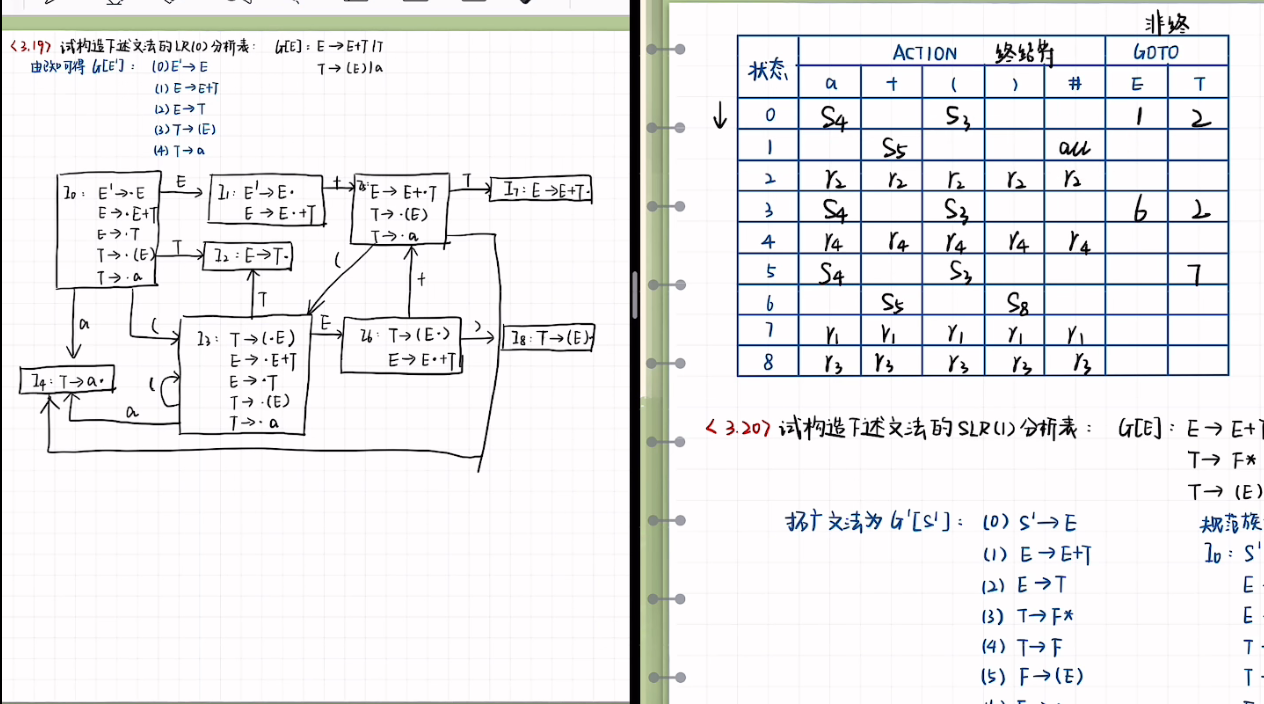 <3.19> 试构造下述文法的LR(0)分析表: G[E]: E→E+T|T
T→(E)|a
由改知可得 G[E']: (0) E'→E
(1) E→E+T
(2) E→T
(3) T→(E)
(4) T→a
I₀: E'→·E
E→·E+T
E→·T
T→·(E)
T→·a
E
I₁: E'→E·
E→E·+T
+
E→E+·T
T→·(E)
T→·a
T
I₇: E→E+T·
T
I₂: E→T·
(
+
T
a
(
I₃: T→(·E)
E→·E+T
E→·T
T→·(E)
T→·a
E
I₆: T→(E·)
E→E·+T
)
I₈: T→(E)·
I₄: T→a·
(
a
非终
状态 ACTION 终结符 GOTO
a + ( ) # E T
0 S₄ S₃ 1 2
1 S₅ acc
2 r₂ r₂ r₂ r₂ r₂
3 S₄ S₃ 6 2
4 r₄ r₄ r₄ r₄ r₄
5 S₄ S₃ 7
6 S₅ S₈
7 r₁ r₁ r₁ r₁ r₁
8 r₃ r₃ r₃ r₃ r₃
<3.20> 试构造下述文法的SLR(1)分析表: G[E]: E→E+T
T→F*
T→(E)
拓广文法为G'[S']: (0) S'→E 规范族
(1) E→E+T I₀: S'
(2) E→T E
(3) T→F* E
(4) T→F T→
(5) F→(E) T→